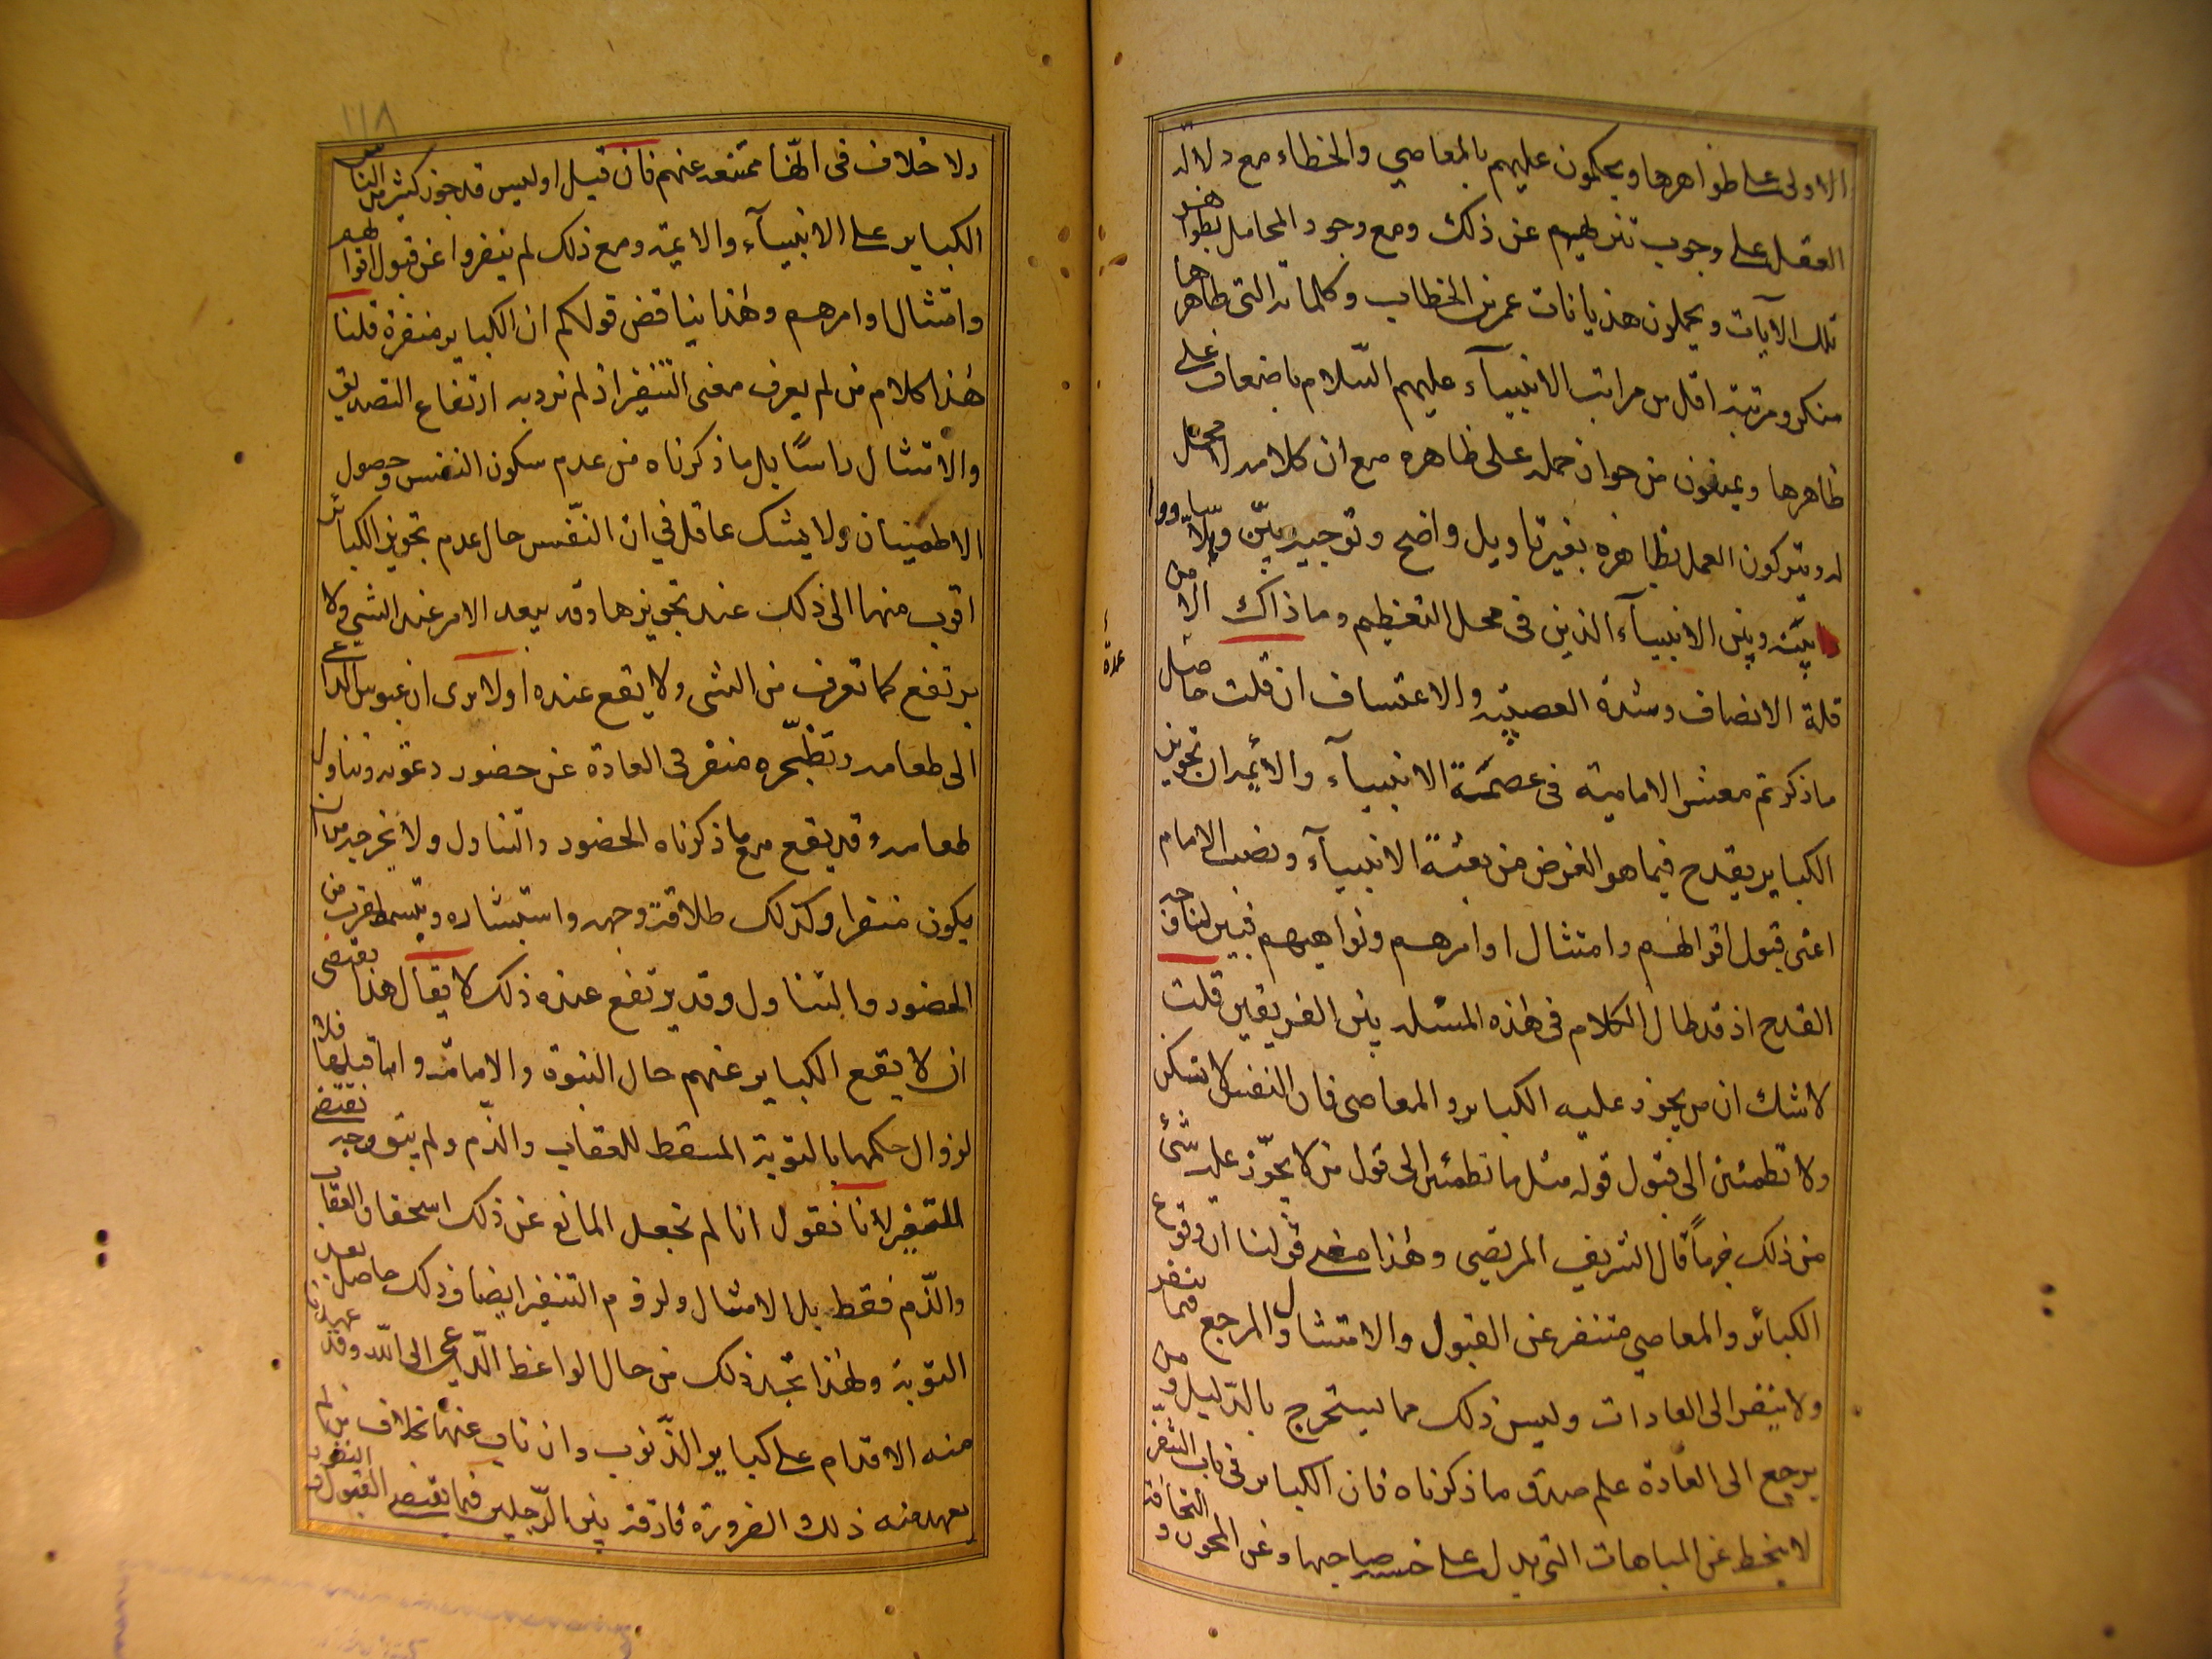 الاولى على ظواهرها ويحكمون عليهم بالمعاصي والخطاء مع دلالة
العقل على وجوب تنزيههم عن ذلك ومع وجود المحامل لظواهر
تلك الآيات ويحملون هذيانات عمر بن الخطاب وكلماته التي ظاهرها
منكر ومرتبته اقل من مراتب الانبيآء عليهم السّلام باضعاف على
ظاهرها ويمنعون من جواز حمله على ظاهره مع ان كلامه لا محمل
له ويتركون العمل بظاهره بغير تاويل واضح وتوجيه بيّن وهلّا ساووا
بينه وبين الانبيآء الذين في محل التعظيم وما ذاك الا من
عدة
قلة الانصاف وشدة العصبيّة والاعتساف ان قلت حاصل
ما ذكرتم معشر الامامية في عصمة الانبيآء والائمة ان تجويز
الكباير يقدح فيما هو الغرض من بعثة الانبيآء ونصب الامام
اعنى قبول اقوالهم وامتثال اوامرهم ونواهيهم فبين لنا وجه
القدح اذ قد طال الكلام في هذه المسئلة بين الفريقين قلت
لا شك ان من يجوز عليه الكباير والمعاصى فان النفس لا تسكن
ولا تطمئن الى قبول قوله مثل ما تطمئن الى قول من لا يجوّز عليه شئ
من ذلك جزماً قال الشريف المرتضى وهذا معنى قولنا ان وقوع
الكبائر والمعاصي متنفر عن القبول والامتثال والمرجع فيما ينفر
ولا ينفر الى العادات وليس ذلك مما يستخرج بالدّليل ومن
يرجع الى العادة علم صدق ما ذكرناه فان الكباير في باب التنفر
لا ينحط عن المباهات التي يدل على خسة صاحبها وعن المجون والسخافة
١١٨
ولا خلاف في انّها ممتنعة عنهم فان قيل اوليس قد جوز كثير من الناس
الكباير على الانبيآء والائمة ومع ذلك لم ينفروا عن قبول اقوالهم
وامتثال اوامرهم وهذا يناقض قولكم ان الكباير منفرة قلنا
هذا كلام من لم يعرف معنى التنفير اذ لم نرد به ارتفاع التصديق
والامتثال راساً بل ما ذكرناه من عدم سكون النفس وحصول
الاطمينان ولا يشك عاقل في ان النّفس حال عدم تجويز الكبائر
اقرب منها الى ذلك عند تجويزها وقد يبعد الامر عند الشئ ولا
يرتفع كما تعرف من الشى ولا يقع عنده اولا ترى ان عبوس الداعي
الى طعامه وتضجّره منفر في العادة عن حضور دعوته وتناول
طعامه وقد يقع مع ما ذكرناه الحضور والتناول ولا يخرجه من ان
يكون منفرا وكذلك طلاقة وجهه واستبشاره وتبسمه يقرب من
الحضور والتناول وقد يرتفع عنده ذلك لا يقال هذا يقتضى
ان لا يقع الكباير عنهم حال النبوة والامامة واما قبلها فلا
لزوال حكمها بالتوبة المسقط للعقاب والذّم ولم يبق وجه يقتضى
للتنفير لانا نقول انا لم نجعل المانع عن ذلك استحقاق العقاب
والذّم فقط بل الامتثال ولزوم التنفير ايضا وذلك حاصل بعد
التوبة ولهذا نجد ذلك من حال الواعظ الدّاعى الى الله وقد عهد منه
منه الاقدام على كباير الذّنوب وان تاب عنها بخلاف من لم
يعهد منه ذلك والضرورة فارقة بين الرّجلين فيما يقتضى القبول والنفور